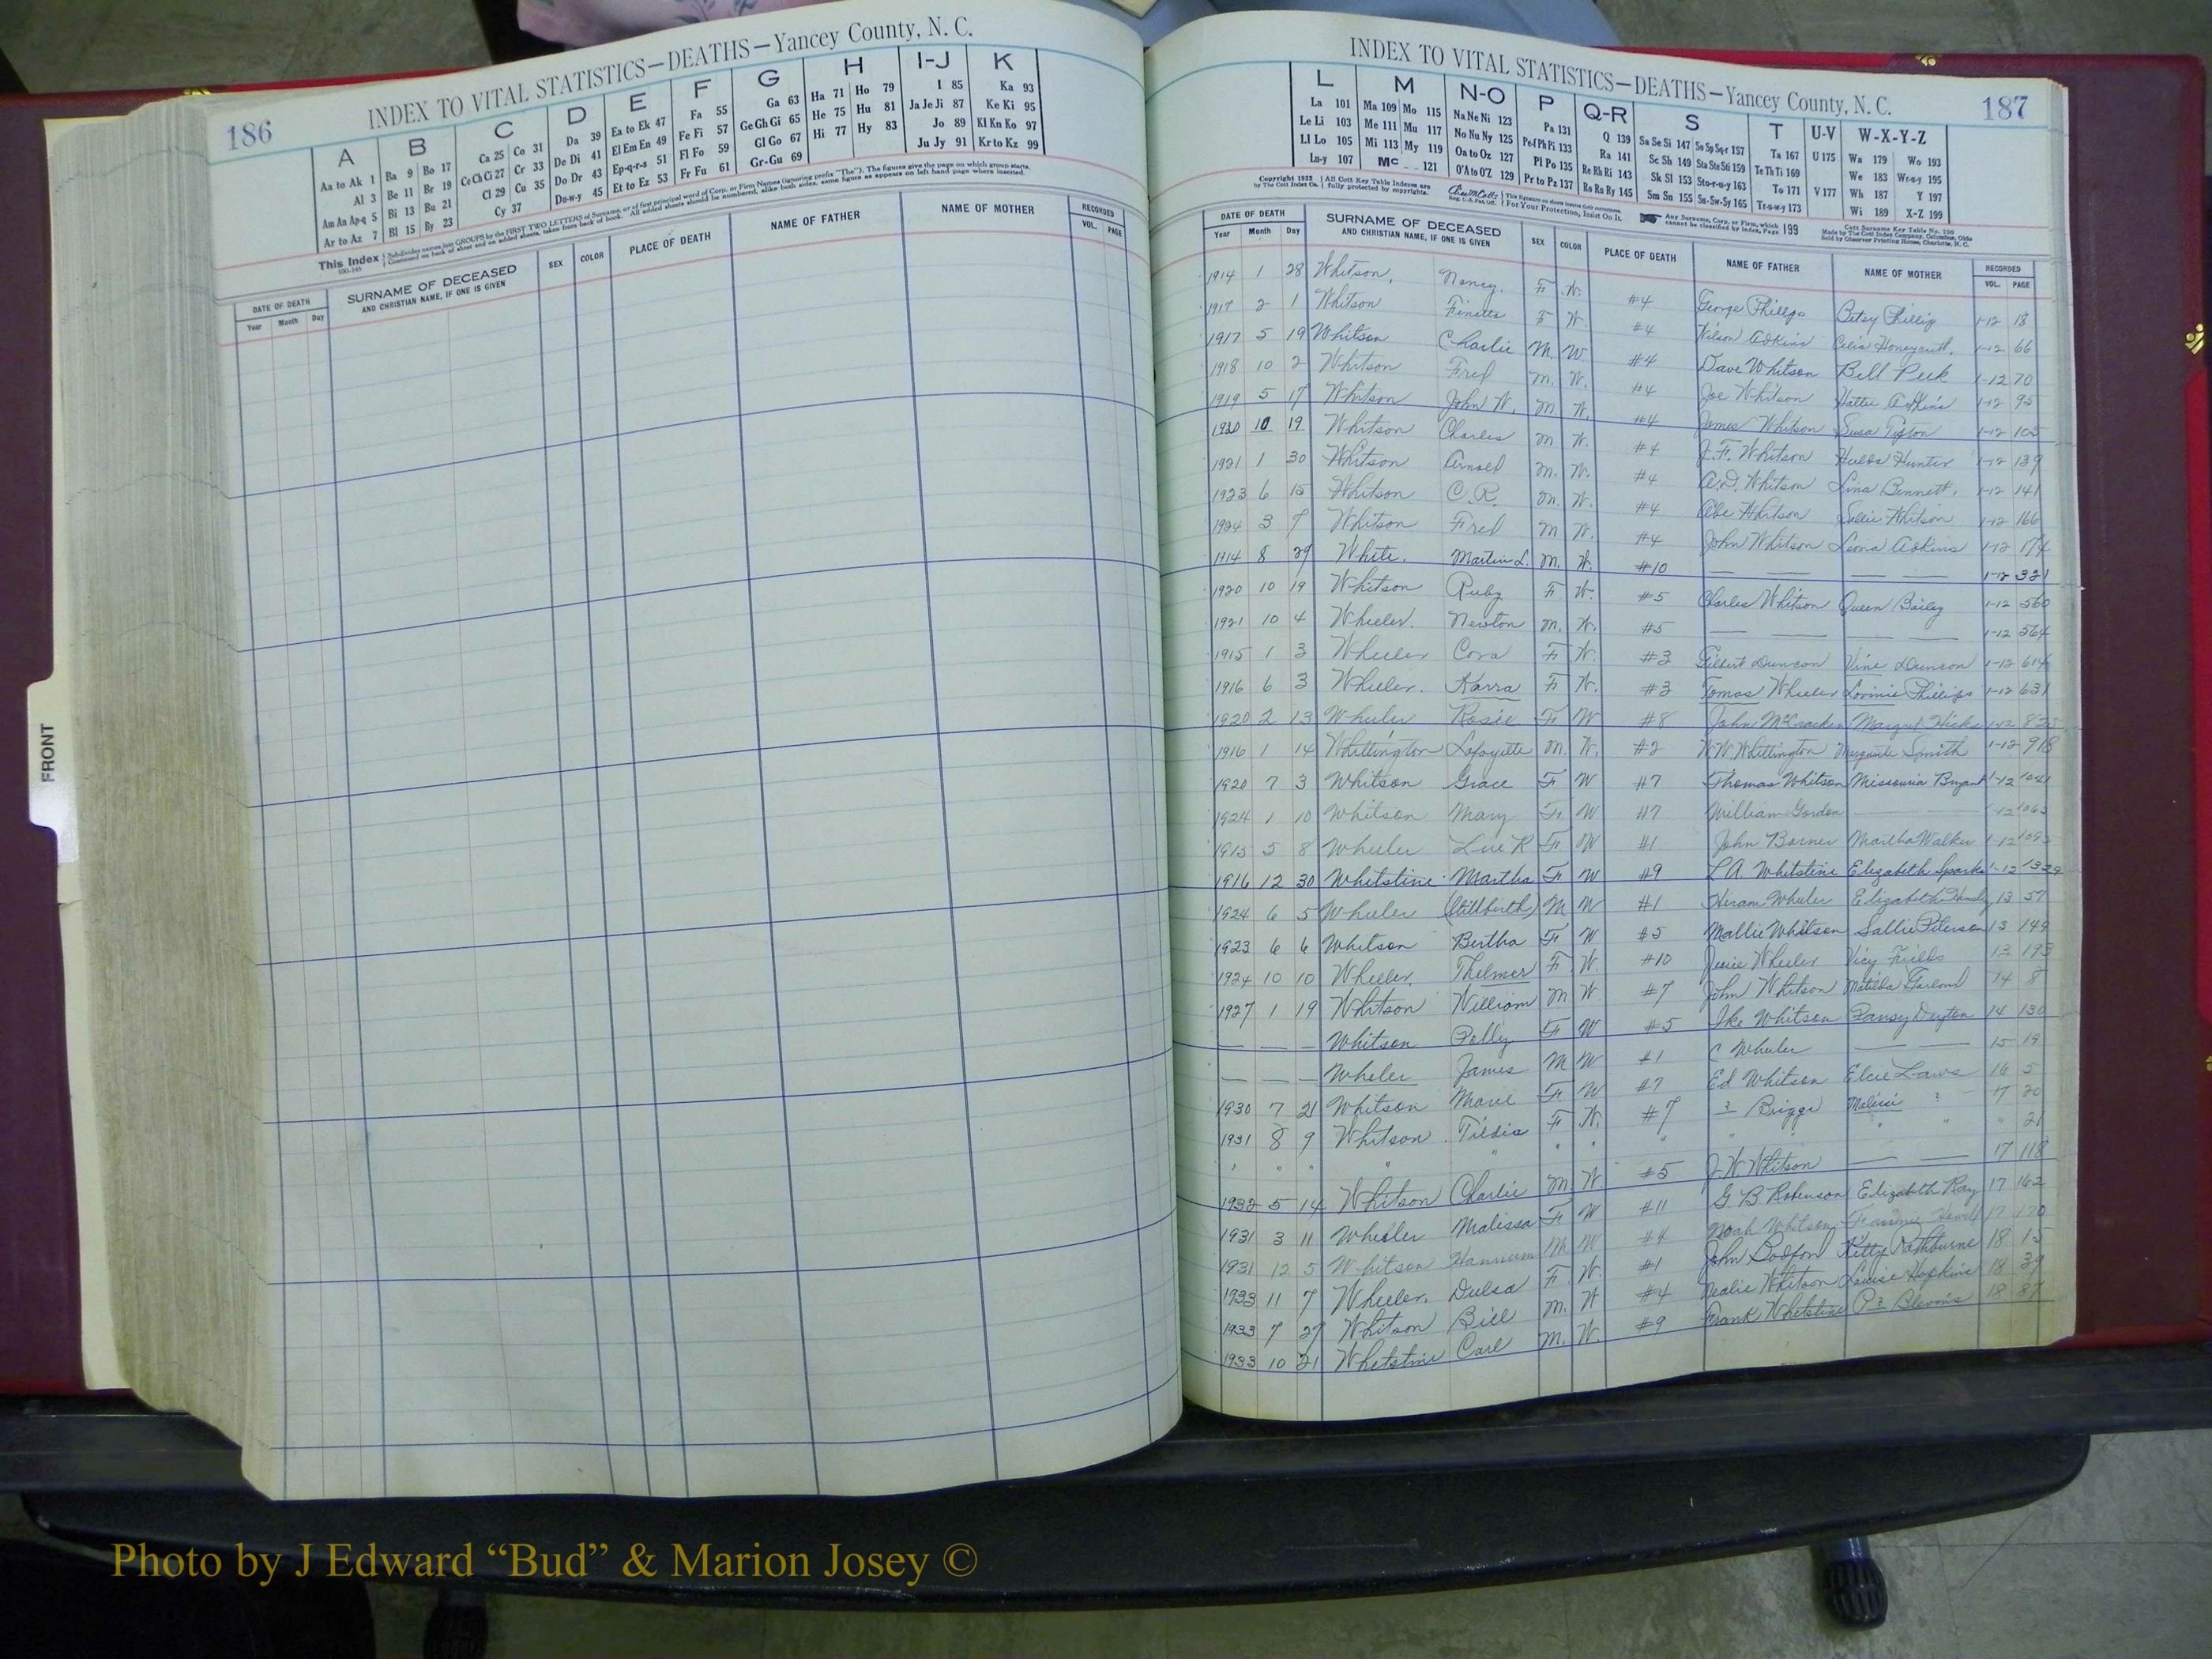 186
INDEX TO VITAL STATISTICS—DEATHS—Yancey County, N. C.
A B C D E F G H I-J K
Aa to Ak 1 Ba 9 Bo 17 Ca 25 Co 31 Da 39 Ea to Ek 47 Fa 55 Ga 63 Ha 71 Ho 79 I 85 Ka 93
Al 3 Be 11 Br 19 Ce Ch Ci 27 Cr 33 De Di 41 El Em En 49 Fe Fi 57 Ge Gh Gi 65 He 75 Hu 81 Ja Je Ji 87 Ke Ki 95
Am An Ap-q 5 Bi 13 Bu 21 Cl 29 Cu 35 Do Dr 43 Ep-q-r-s 51 Fl Fo 59 Gl Go 67 Hi 77 Hy 83 Jo 89 Kl Kn Ko 97
Ar to Az 7 Bl 15 By 23 Cy 37 Du-w-y 45 Et to Ez 53 Fr Fu 61 Gr-Gu 69 Ju Jy 91 Kr to Kz 99
This Index
DATE OF DEATH SURNAME OF DECEASED SEX COLOR PLACE OF DEATH NAME OF FATHER NAME OF MOTHER RECORDED
Year Month Day AND CHRISTIAN NAME, IF ONE IS GIVEN VOL. PAGE
FRONT
INDEX TO VITAL STATISTICS—DEATHS—Yancey County, N. C.
187
L M N-O P Q-R S T U-V W-X-Y-Z
La 101 Ma 109 Mo 115 Na Ne Ni 123 Pa 131 Q 139 Sa Se Si 147 So Sp Sq-r 157 Ta 167 U 175 Wa 179 Wo 193
Le Li 103 Me 111 Mu 117 No Nu Ny 125 Pe-f Ph Pi 133 Ra 141 Sc Sh 149 Sta Ste Sti 159 Te Th Ti 169 We 183 Wr-u-y 195
Ll Lo 105 Mi 113 My 119 Oa to Oz 127 Pl Po 135 Re Rh Ri 143 Sk Sl 153 Sto-r-u-y 163 To 171 V 177 Wh 187 Y 197
Lu-y 107 Mc 121 O'A to O'Z 129 Pr to Pz 137 Ro Ru Ry 145 Sm Sn 155 Su-Sw-Sy 165 Tr-u-w-y 173 Wi 189 X-Z 199
DATE OF DEATH SURNAME OF DECEASED SEX COLOR PLACE OF DEATH NAME OF FATHER NAME OF MOTHER RECORDED
Year Month Day AND CHRISTIAN NAME, IF ONE IS GIVEN VOL. PAGE
1914 1 28 Whitson, Nancy. F. W. #4 George Phillips Betsy Phillip 1-12 18
1917 2 1 Whitson Finetta F W. #4 Wilson Adkins Celia Honeycutt. 1-12 66
1917 5 19 Whitson Charlie M. W. #4 Dave Whitson Bell Peek 1-12 70
1918 10 2 Whitson Fred M. W. #4 Joe Whitson Hattie Adkins 1-12 95
1919 5 17 Whitson John W. M W. #4 James Whitson Susa Tipton 1-12
1920 10 19 Whitson Charles M W. #4 J.F. Whitson Hulda Hunter 1-12 139
1921 1 30 Whitson Arnold M. W. #4 A.D. Whitson Lina Bennett. 1-12 141
1923 6 15 Whitson C.R. M. W. #4 Abe Whitson Sallie Whitson 1-12 166
1924 3 7 Whitson Fred M W. #4 John Whitson Leona Adkins 1-12 174
1914 8 29 White. Martin L. M. W. #10 — — — — 1-12 321
1920 10 19 Whitson Ruby F W. #5 Charles Whitson Queen Bailey 1-12 560
1921 10 4 Wheeler. Newton M. W. #5 — — — — 1-12 564
1915 1 3 Wheeler Cora F W. #3 Gilbert Duncan Vine Duncan 1-12 614
1916 6 3 Wheeler. Karra F W. #3 Tomas Wheeler Lovinie Phillips 1-12 631
1920 2 13 Wheeler Rosie F W #8 John McCracken Margret Hicks 1-12
1916 1 14 Whittington Lafayette M. W. #2 W.W. Whittington Marguite Smith 1-12 918
1920 7 3 Whitson Grace F W #7 Thomas Whitson Missouria Bryant 1-12 1041
1924 1 10 Whitson Mary F. W #7 William Gordon — 1-12 1063
1915 5 8 Wheeler Lue R F W #1 John Bosner Martha Walker 1-12
1916 12 30 Whitstine Martha F W #9 L A Whitstine Elizabeth Sparks 1-12 1339
1924 6 5 Wheeler (Stillbirth) M W #1 Hiram Wheeler Elizabeth 13 57
1923 6 6 Whitson Bertha F W #5 Mallie Whitson Sallie Peterson 13 149
1924 10 10 Wheeler. Thelmer F W. #10 Jessie Wheeler Vicy Fields 13 193
1927 1 19 Whitson William M W #7 John Whitson Matilda Garland 14 8
— — — Whitson Polly F W #5 Ike Whitson Pansy Deyton 14 130
— — — Wheler James M W #1 C Wheeler — — 15 19
1930 7 21 Whitson Marie F W #7 Ed Whitson Elcie Laws 16 5
1931 8 9 Whitson Tildia F W. #7 ? Briggs Malissi ? 17 20
" " " " " " " " " " " " " 21
1932 5 14 Whitson Charlie M W #5 J.W. Whitson — — 17 118
1931 3 11 Wheeler Malissa F W #11 G B Robinson Elizabeth Ray 17 162
1931 12 5 Whitson Hannum M W #4 Noah Whitson 17 170
1933 11 7 Wheeler. Dulsa F. W. #1 John Kitty Rathburne 18 15
1933 7 27 Whitson Bill M. W #4 Nealie Whitson Louise Hopkins 18 39
1933 10 21 Whetstine Carl M. W. #9 Frank Whetstine P? Blevins 18 87
Photo by J Edward “Bud” & Marion Josey ©